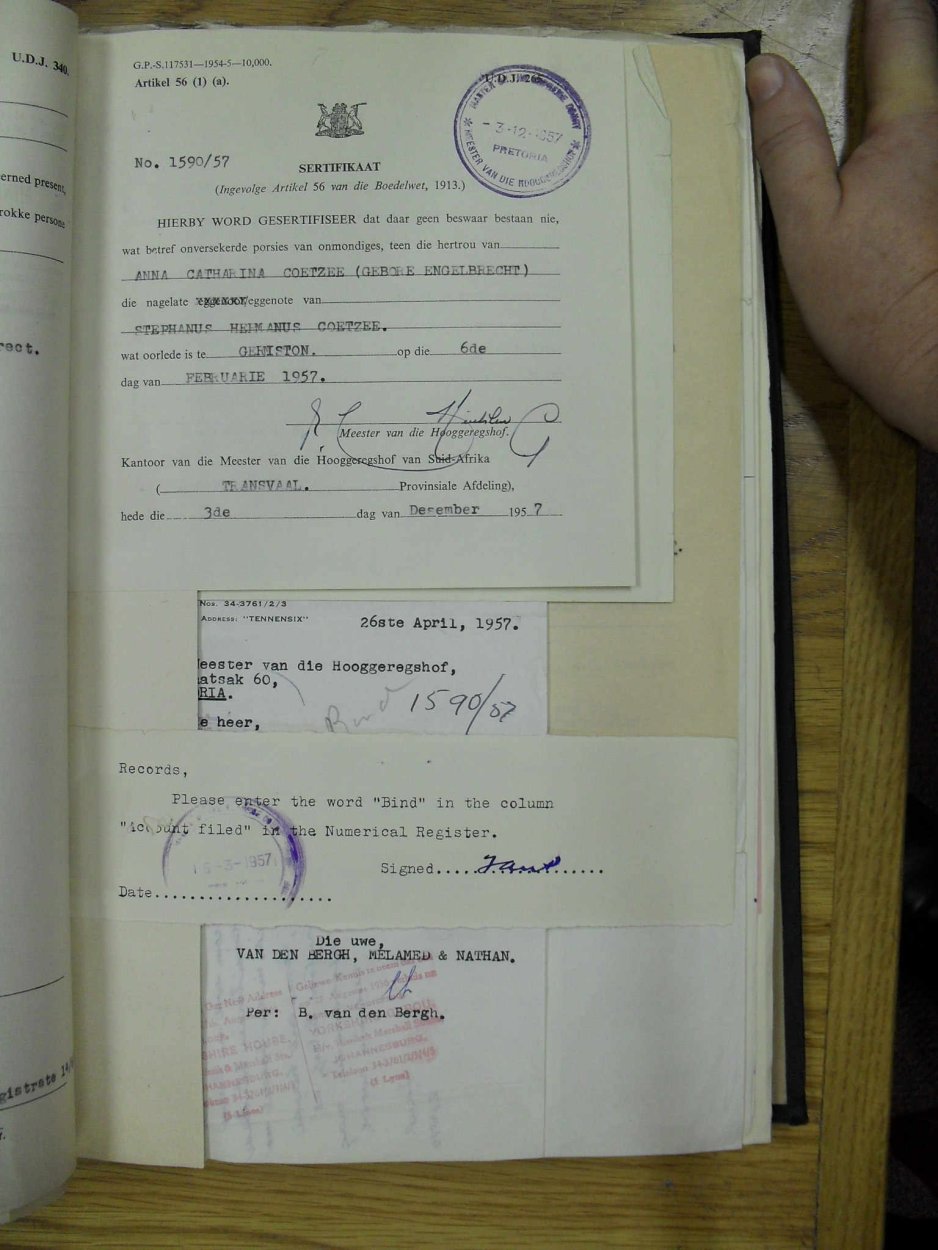 U.D.J. 340.
erned present,
rokke persone
rect.
gistrate
G.P.-S.117531—1954-5—10,000.
Artikel 56 (1) (a).
U.D.J.
3-12-1957
PRETORIA
MEESTER VAN DIE HOOGGEREGSHOF
No. 1590/57
SERTIFIKAAT
(Ingevolge Artikel 56 van die Boedelwet, 1913.)
HIERBY WORD GESERTIFISEER dat daar geen beswaar bestaan nie,
wat betref onversekerde porsies van onmondiges, teen die hertrou van
ANNA CATHARINA COETZEE (GEBORE ENGELBRECHT)
die nagelate eggenote van
STEPHANUS HERMANUS COETZEE.
wat oorlede is te GERMISTON. op die 6de
dag van FEBRUARIE 1957.
Meester van die Hooggeregshof.
Kantoor van die Meester van die Hooggeregshof van Suid-Afrika
( TRANSVAAL. Provinsiale Afdeling),
hede die 3de dag van Desember 1957
Nos. 34-3761/2/3
ADDRESS: "TENNENSIX"
26ste April, 1957.
eester van die Hooggeregshof,
atsak 60,
RIA.
e heer,
Bind 1590/57
Records,
Please enter the word "Bind" in the column
"Account filed" in the Numerical Register.
-3-1957
Signed...........
Date....................
Die uwe,
VAN DEN BERGH, MELAMED & NATHAN.
Per: B. van den Bergh.
Our New Address
SHIRE HOUSE,
JOHANNESBURG.
(3 Lines)
(3 Lyne)